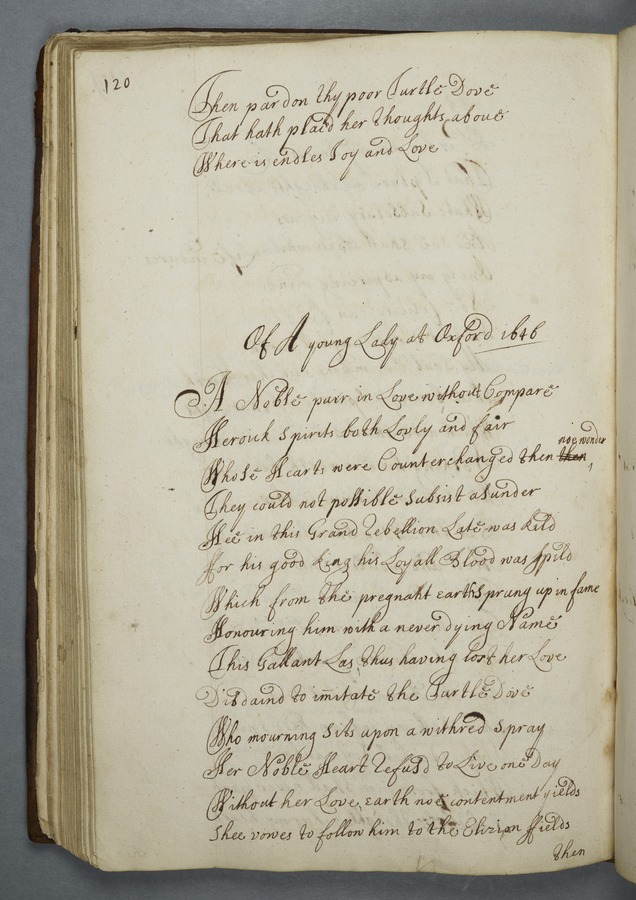 120
Then pardon thy poor Turtle Dove
That hath plac'd her thoughts above
Where is endles Joy and Love
Of A young Lady at Oxford 1646
A Noble pair in Love without Compare
Heroick Spirits both Lovly and fair
Whose Hearts were Counterchanged then then noe wonder
They could not possible Subsist asunder
Hee in this Grand Rebellion Late was kild
For his good king his Loyall Blood was spild
Which from the pregnant earth Sprung up in fame
Honouring him with a never dying Name
This Gallant Las thus having lost her Love
Disdaind to imitate the Turtle Dove
Who mourning Sits upon a withred Spray
Her Noble Heart refusd to Live one day
Without her Love, earth noe contentment yields
Shee vowes to follow him to the Elizian ffields
then